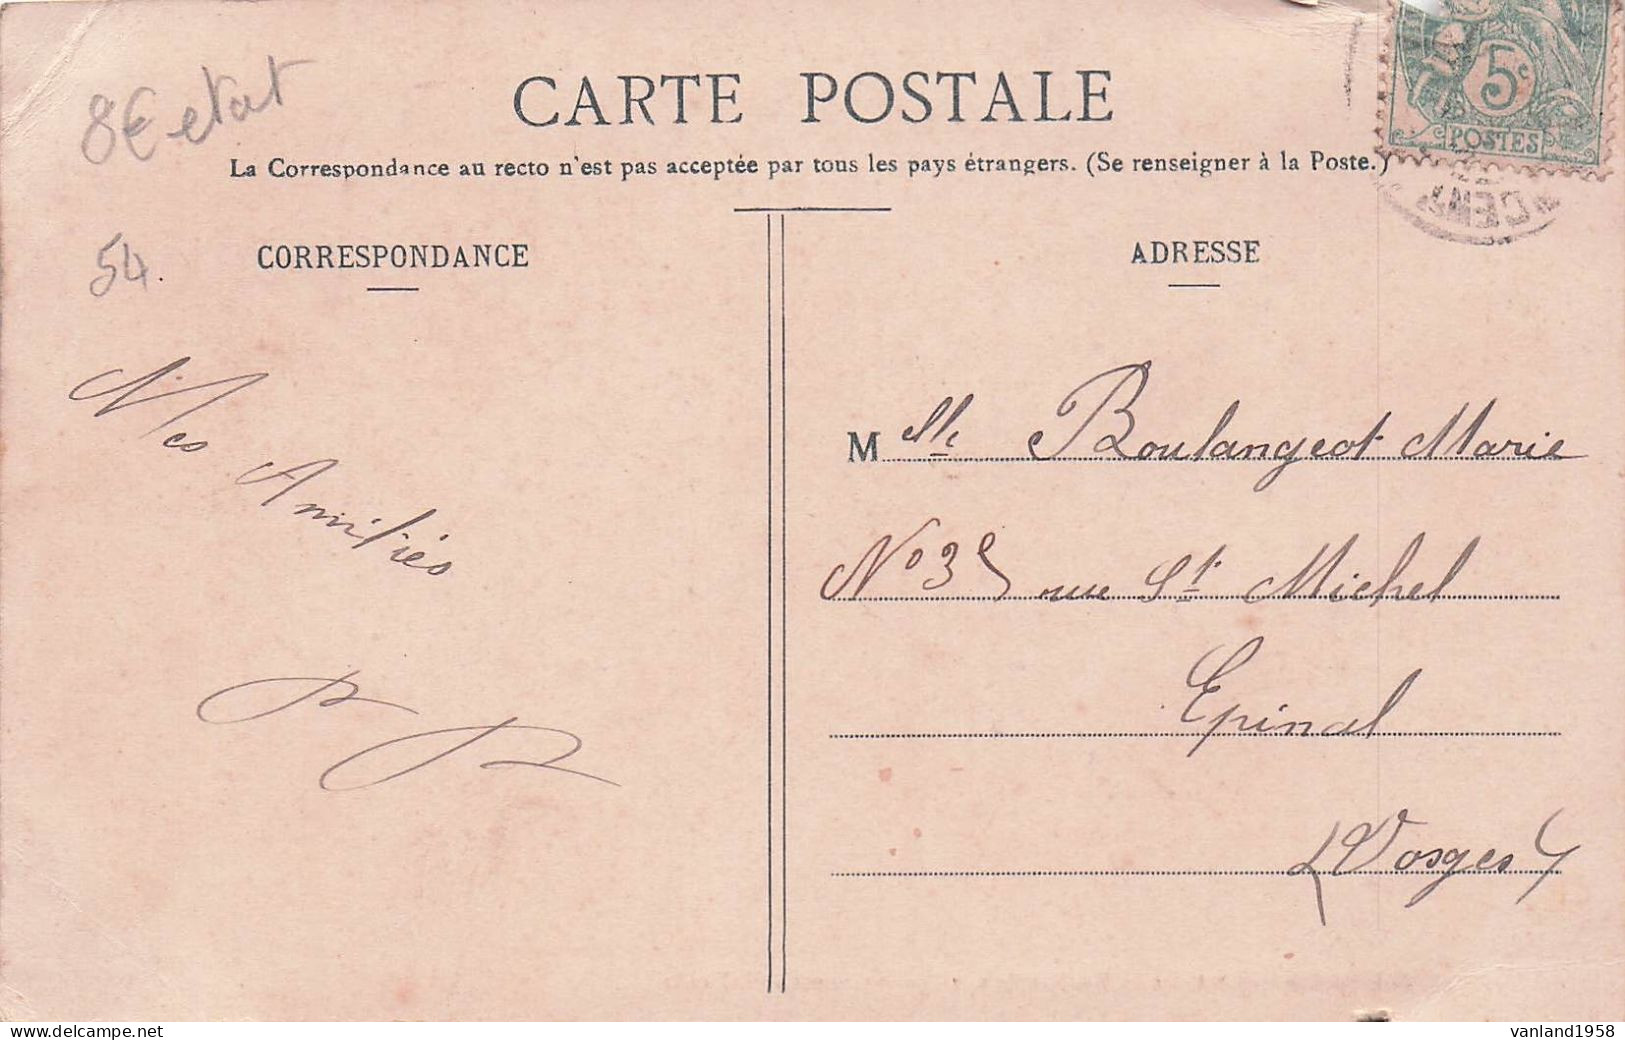 CARTE POSTALE
8€ etat
La Correspondance au recto n'est pas acceptée par tous les pays étrangers. (Se renseigner à la Poste.)
5c
POSTES
54.
CORRESPONDANCE
Mes
Amitiés
ADRESSE
Melle Boulangeot Marie
No 35 rue St. Michel
Epinal
(Vosges)
vanland1958